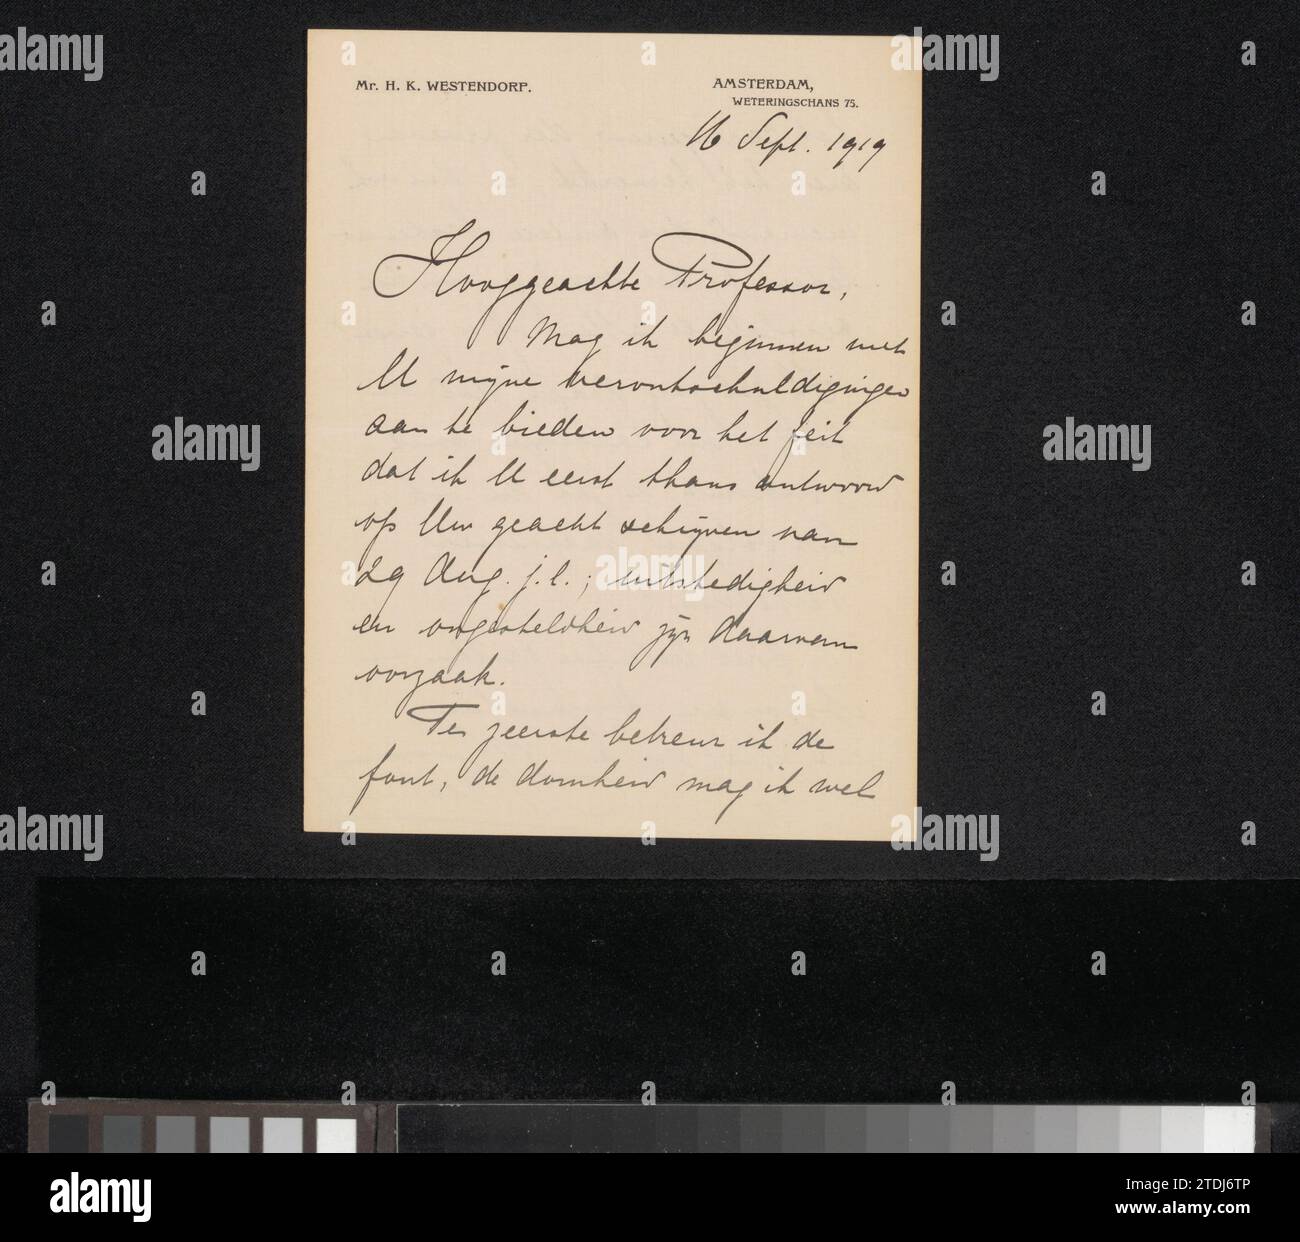 Mr. H. K. WESTENDORP.
AMSTERDAM,
WETERINGSCHANS 75.
16 Sept. 1919
Hooggeachte Professor,
Mag ik beginnen met
U mijne verontschuldigingen
aan te bieden voor het feit
dat ik U eerst thans antwoord
op Uw geacht schrijven van
29 Aug. j.l.; uitstedigheid
en ongesteldheid zijn daarvan
oorzaak.
Ten zeerste betreur ik de
fout, de domheid mag ik wel
alamy
Image ID: 2TDJ6TP
www.alamy.com